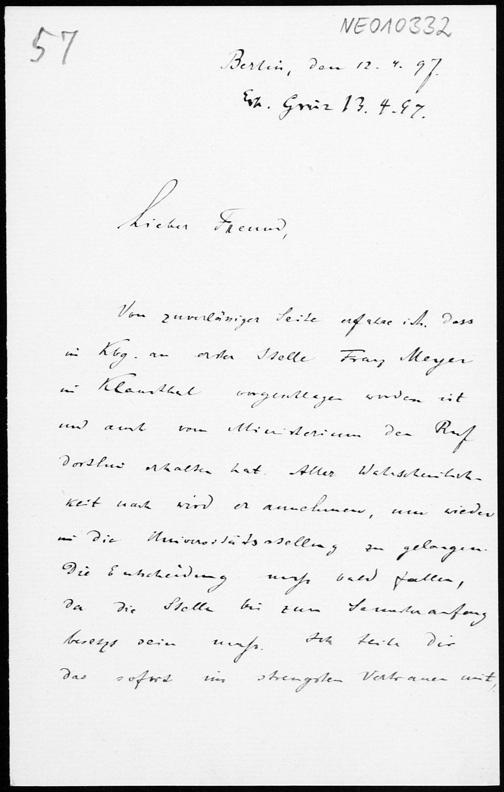 57
NEO10332
Berlin, den 12. 4. 97.
Erh. Graz 13. 4. 97.
Lieber Freund,
Von zuverlässiger Seite erfahre ich, dass
in Kbg. an erster Stelle Franz Meyer
in Klausthal vorgeschlagen worden ist
und auch vom Ministerium den Ruf
dorthin erhalten hat. Aller Wahrscheinlich-
keit nach wird er annehmen, um wieder
in die Universitätsstellung zu gelangen.
Die Entscheidung muß bald fallen,
da die Stelle bis zum Semesteranfang
besetzt sein muß. Ich teile Dir
das sofort im strengsten Vertrauen mit,